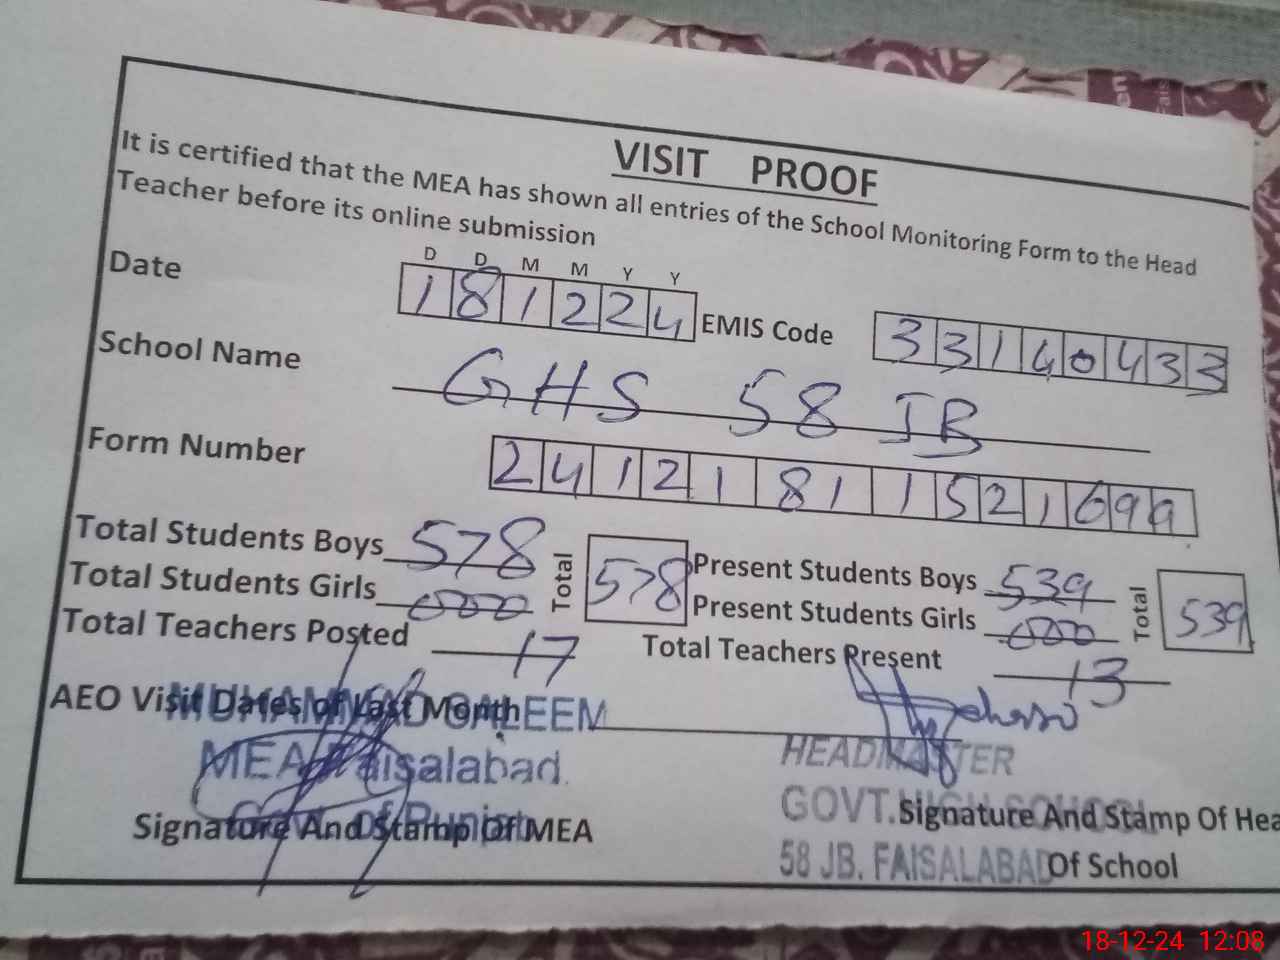 VISIT PROOF
It is certified that the MEA has shown all entries of the School Monitoring Form to the Head
Teacher before its online submission
D D M M Y Y
Date 181224 EMIS Code 33140433
School Name GHS 58 JB
Form Number 24121811521699
Total Students Boys 578 Total 578 Present Students Boys 539 Total 539
Total Students Girls 000 Present Students Girls 000
Total Teachers Posted 17 Total Teachers Present 13
AEO Visit Dates of Last Month
MUHAMMAD SALEEM
MEA Faisalabad.
Govt. of Punjab
Signature And Stamp Of MEA
HEADMASTER
GOVT. HIGH SCHOOL
58 JB. FAISALABAD
Signature And Stamp Of Hea
Of School
18-12-24 12:08